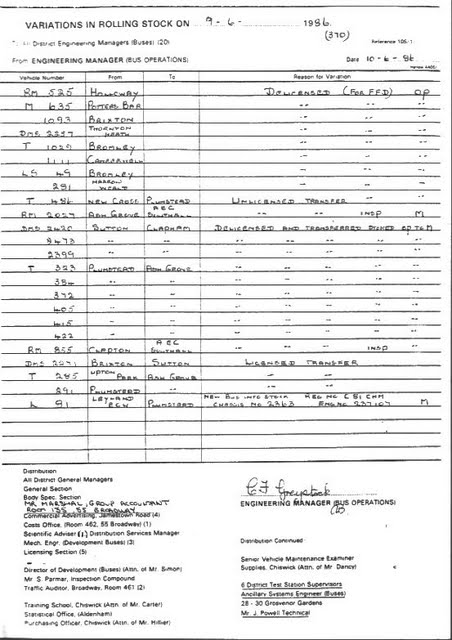 VARIATIONS IN ROLLING STOCK ON 9-6- 1986
(370)
To: All District Engineering Managers (Buses) (20) Reference 105/1
From ENGINEERING MANAGER (BUS OPERATIONS) Date 10-6-86
Vehicle Number From To Reason for Variation
RM 525 HOLLOWAY DELICENSED (FOR FFD) OP
M 635 POTTERS BAR -- -- --
1093 BRIXTON -- -- --
DMS THORNTON HEATH -- -- --
T 1029 BROMLEY -- -- --
1111 CAMBERWELL -- -- --
LS 49 BROMLEY -- -- --
281 HARROW WEALD -- -- --
T 486 NEW CROSS PLUMSTEAD UNLICENSED TRANSFER
RM 2027 ASH GROVE AEC SOUTHALL -- -- INSP M
DMS 2420 SUTTON CLAPHAM DELICENSED AND TRANSFERRED OP TO M
2473 -- -- -- -- --
2399 -- -- -- -- --
T 323 PLUMSTEAD ASH GROVE -- -- --
354 -- -- -- -- --
372 -- -- -- -- --
405 -- -- -- -- --
415 -- -- -- -- --
422 -- -- -- -- --
RM 855 CLAPTON AEC SOUTHALL -- -- INSP
DMS BRIXTON SUTTON LICENSED TRANSFER
T 285 UPTON PARK ASH GROVE -- --
291 PLUMSTEAD -- -- --
L 91 LEYLAND ECW PLUMSTEAD NEW BUS INTO STOCK REG NO C 91 CHM CHASSIS NO 2363 ENG NO 237107 M
Distribution
All District General Managers
General Section
Body Spec. Section
MR MARSHAL, GROUP ACCOUNTANT
ROOM 135 55 BROADWAY
Commercial Advertising, Jamestown Road (4)
Costs Office, (Room 462, 55 Broadway) (1)
Scientific Adviser (1) Distribution Services Manager
Mech. Engr. (Development Buses) (3)
Licensing Section (5)
Director of Development (Buses) (Attn. of Mr. Simon)
Mr. S. Parmar, Inspection Compound
Traffic Auditor, Broadway, Room 461 (2)
Training School, Chiswick (Attn. of Mr. Carter)
Statistical Office, (Aldenham)
Purchasing Officer, Chiswick (Attn. of Mr. Hillier)
C F Greystock
ENGINEERING MANAGER (BUS OPERATIONS)
Distribution Continued
Senior Vehicle Maintenance Examiner
Supplies, Chiswick (Attn. of Mr. Dancy)
6 District Test Station Supervisors
Ancillary Systems Engineer (Buses)
28 - 30 Grosvenor Gardens
Mr. J. Powell Technical